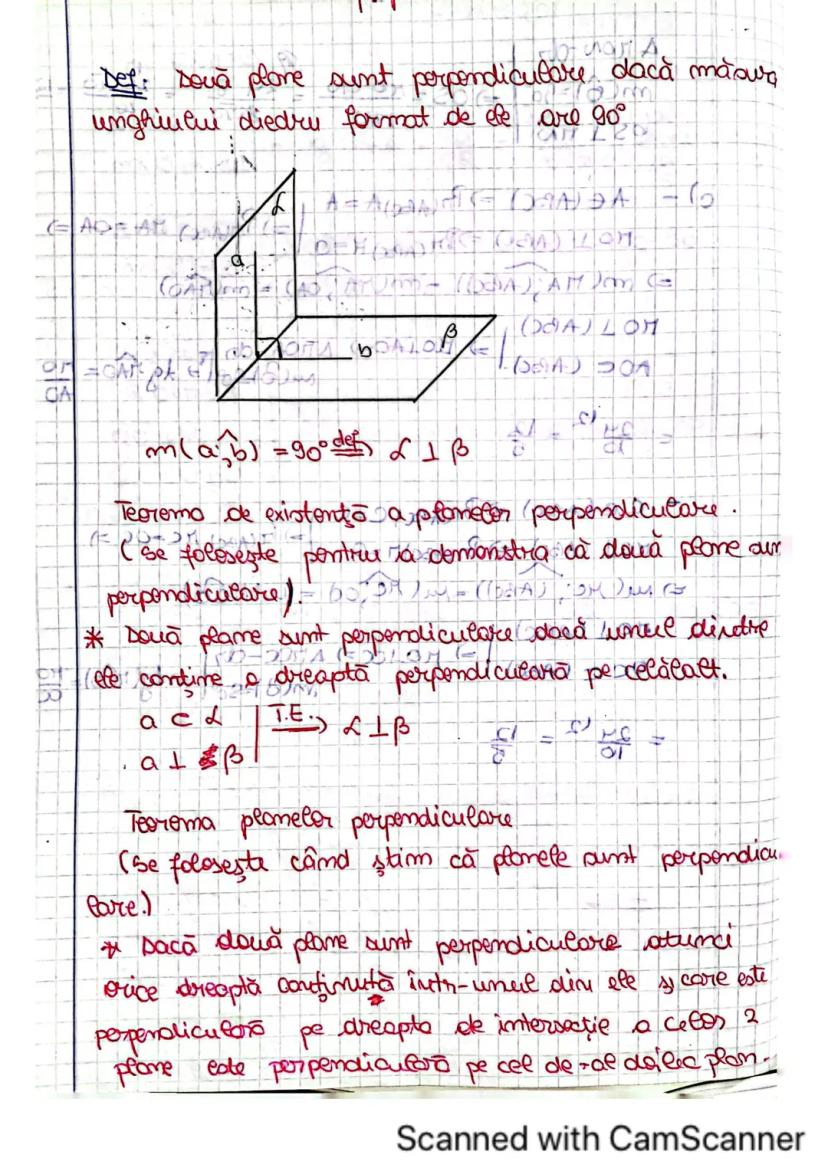 Def: Două plane sunt perpendiculare dacă măsura
unghiului diedru format de ele are 90°
α
a
β
b
m(a,b) = 90° def⟹ α ⊥ β
Teorema de existență a planelor perpendiculare.
(Se folosește pentru a demonstra că două plane sun
perpendiculare).
* Două plane sunt perpendiculare dacă unul dintre
ele conține o dreaptă perpendiculară pe celălalt.
a ⊂ α | T.E.⟹ α ⊥ β
a ⊥ β
Teorema planelor perpendiculare
(Se folosește când știm că planele sunt perpendicu
lare.)
* Dacă două plane sunt perpendiculare atunci
orice dreaptă conținută într-unul din ele și care este
perpendiculară pe dreapta de intersecție a celor 2
plane este perpendiculară pe cel de-al doilea plan.
Scanned with CamScanner